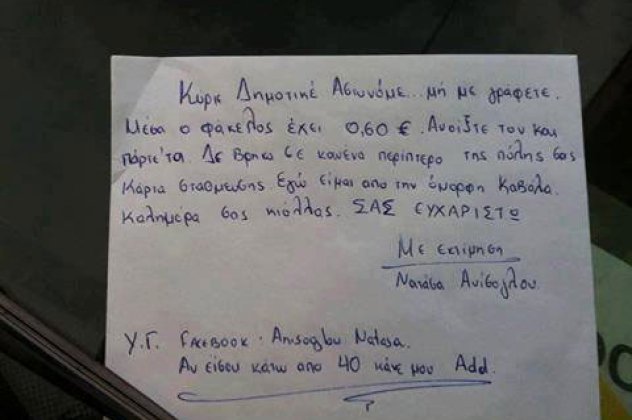 Κυριε Δημοτικέ Αστυνόμε... μή με γράφετε.
Μέσα ο φάκελος έχει 0,60 €. Ανοίξτε τον και
πάρτε τα. Δε βρήκα σε κανένα περίπτερο της πόλης σας
Κάρτα στάθμευσης Εγώ είμαι από την όμορφη Καβάλα.
Καλημέρα σας κιόλλας. ΣΑΣ ΕΥΧΑΡΙΣΤΩ
Με εκτίμηση
Νατάσα Ανίσογλου.
Υ.Γ. FACEBOOK. Anisoglou Natasa.
Αν είσου κάτω απο 40 κάνε μου Add.